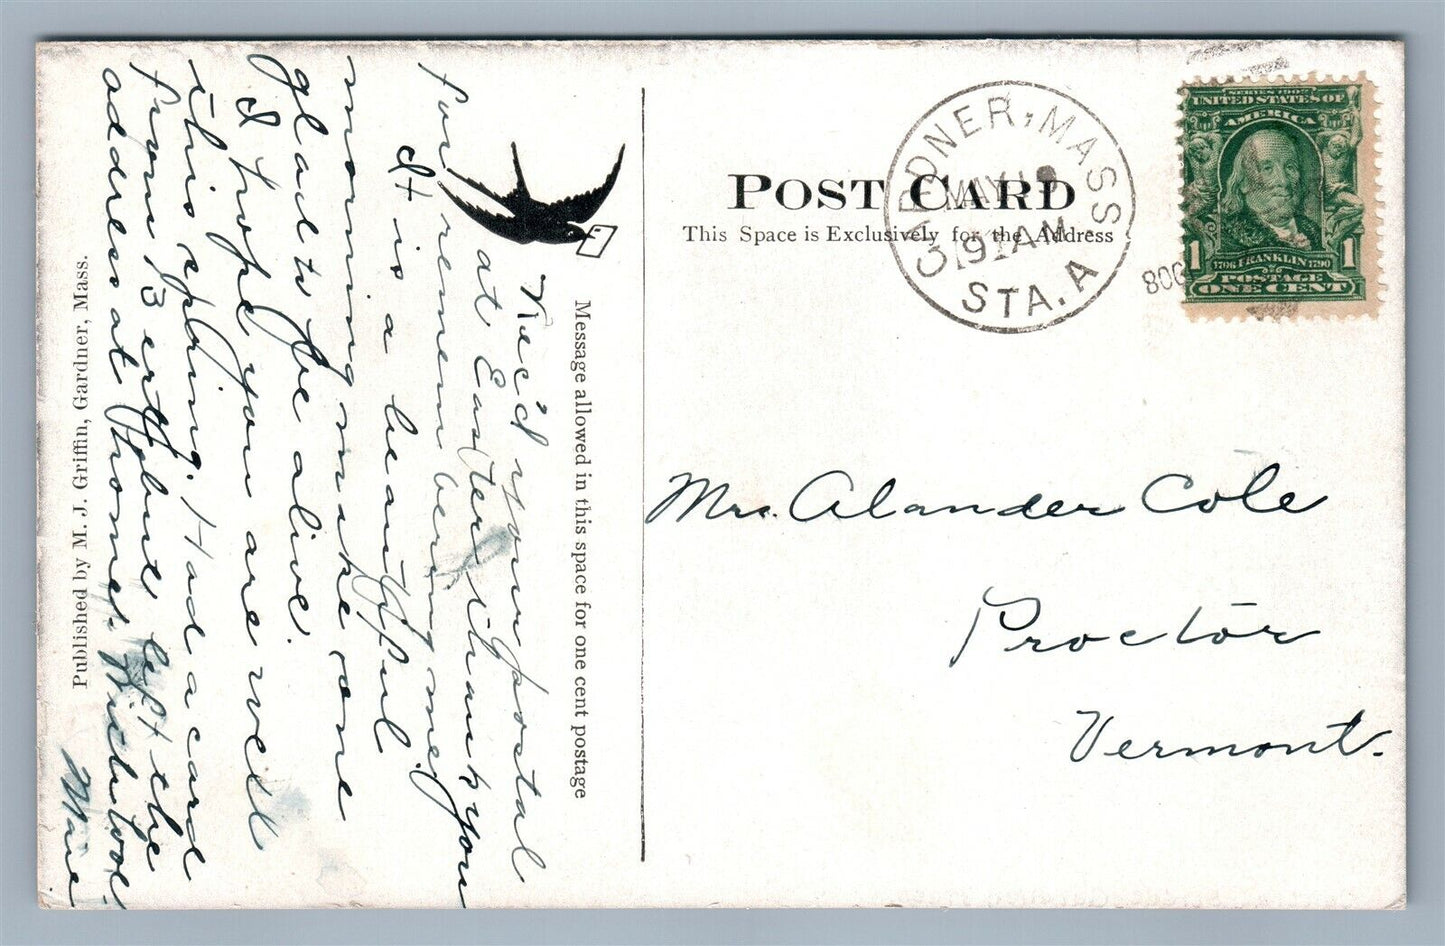 POST CARD
This Space is Exclusively for the Address
GARDNER, MASS.
MAY
AM
STA. A.
SERIES 1902
UNITED STATES OF
AMERICA
1 1
1706 FRANKLIN 1790
POSTAGE
ONE CENT
Mrs. Alander Cole
Proctor
Vermont.
Message allowed in this space for one cent postage
Rec'd your postal
at Easter thank you
for remembering me
It is a beautiful
morning make one
glad to be alive.
I hope you are well
this spring. Had a card
from B
left the
address at home.
Published by M. J. Griffin, Gardner, Mass.